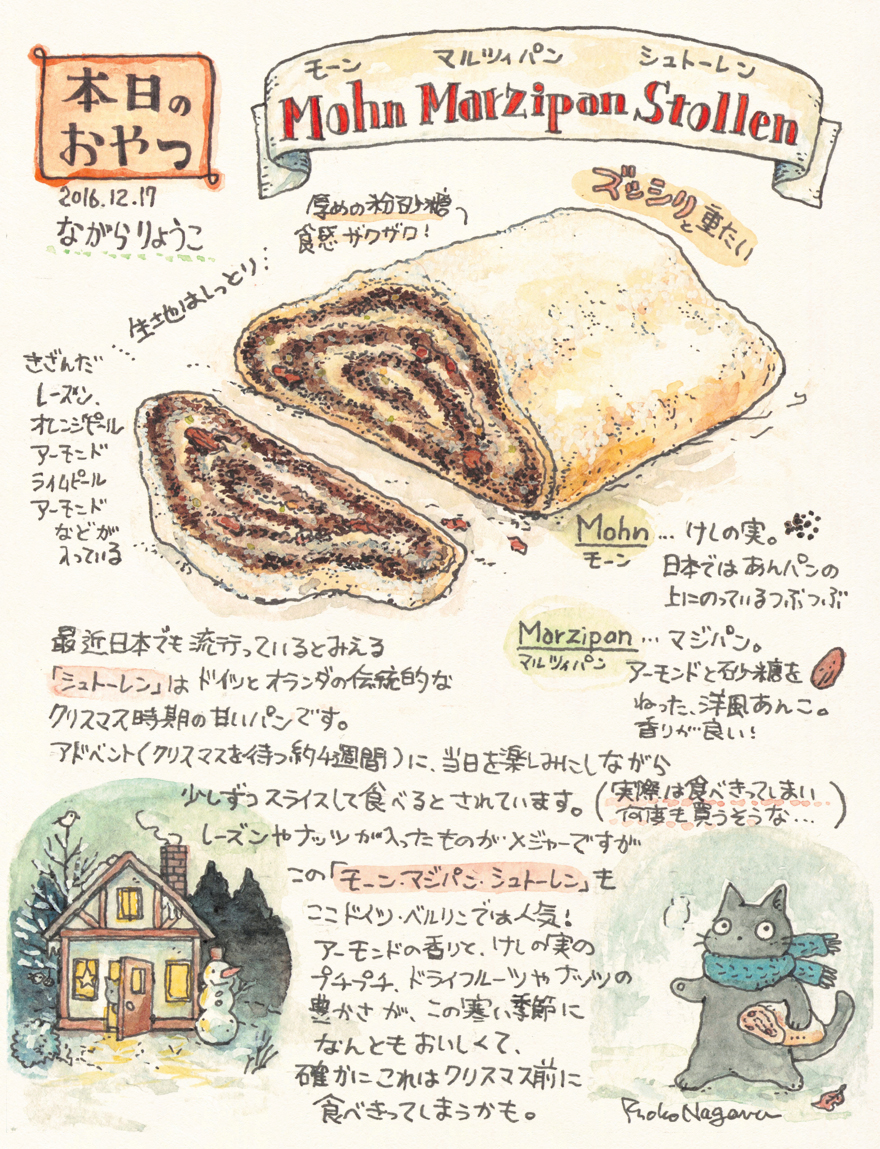 本日の
おやつ
2016.12.17
ながらりょうこ
モーン マルツィパン シュトーレン
Mohn Marzipan Stollen
厚めの粉砂糖
食感ザクザク!
ズッシリと重たい
生地はしっとり:
きざんだ
レーズン、
オレンジピール
アーモンド
ライムピール
アーモンド
などが
入っている
Mohn … けしの実。
モーン
日本ではあんパンの
上にのっているつぶつぶ
Marzipan … マジパン。
マルツィパン
アーモンドと砂糖を
ねった、洋風あんこ。
香りが良い!
最近日本でも流行っているとみえる
「シュトーレン」はドイツとオランダの伝統的な
クリスマス時期の甘いパンです。
アドベント(クリスマスを待つ約4週間)に、当日を楽しみにしながら
少しずつスライスして食べるとされています。
(実際は食べきってしまい
何度も買うそうな…)
レーズンやナッツが入ったものがメジャーですが
この「モーン・マジパン・シュトーレン」も
ここドイツ・ベルリンでは人気!
アーモンドの香りと、けしの実の
プチプチ、ドライフルーツやナッツの
豊かさが、この寒い季節に
なんともおいしくて、
確かにこれはクリスマス前に
食べきってしまうかも。
Ryoko Nagara